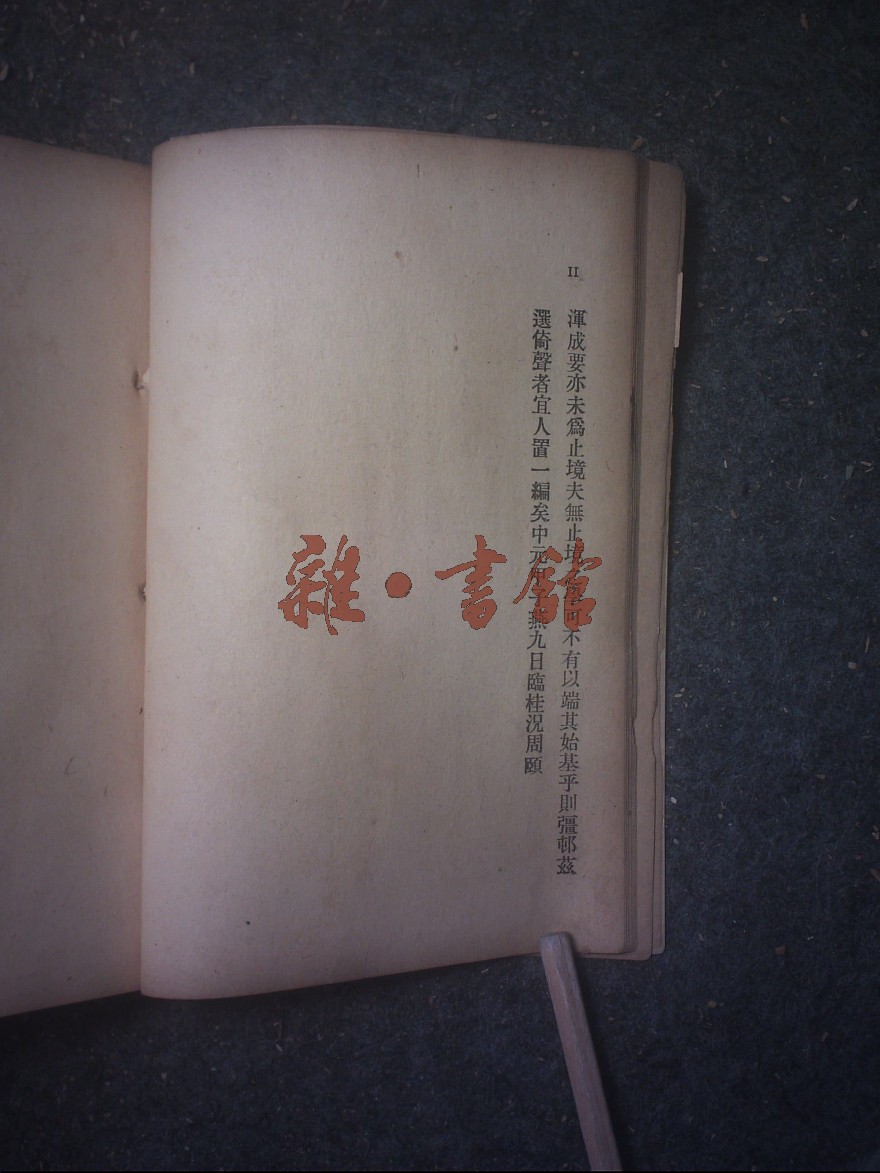 II
渾成要亦未爲止境夫無止境
可不有以端其始基乎則彊邨茲
選倚聲者宜人置一編矣中元甲子燕九日臨桂况周頤
雜·書館